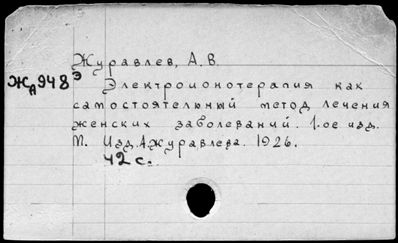 Журавлев, А.В.
ЖД948Э Электроионотерапия как
самостоятельный метод лечения
женских заболеваний. 1.ое изд.
М. Изд. А.Журавлева. 1926.
42 с.